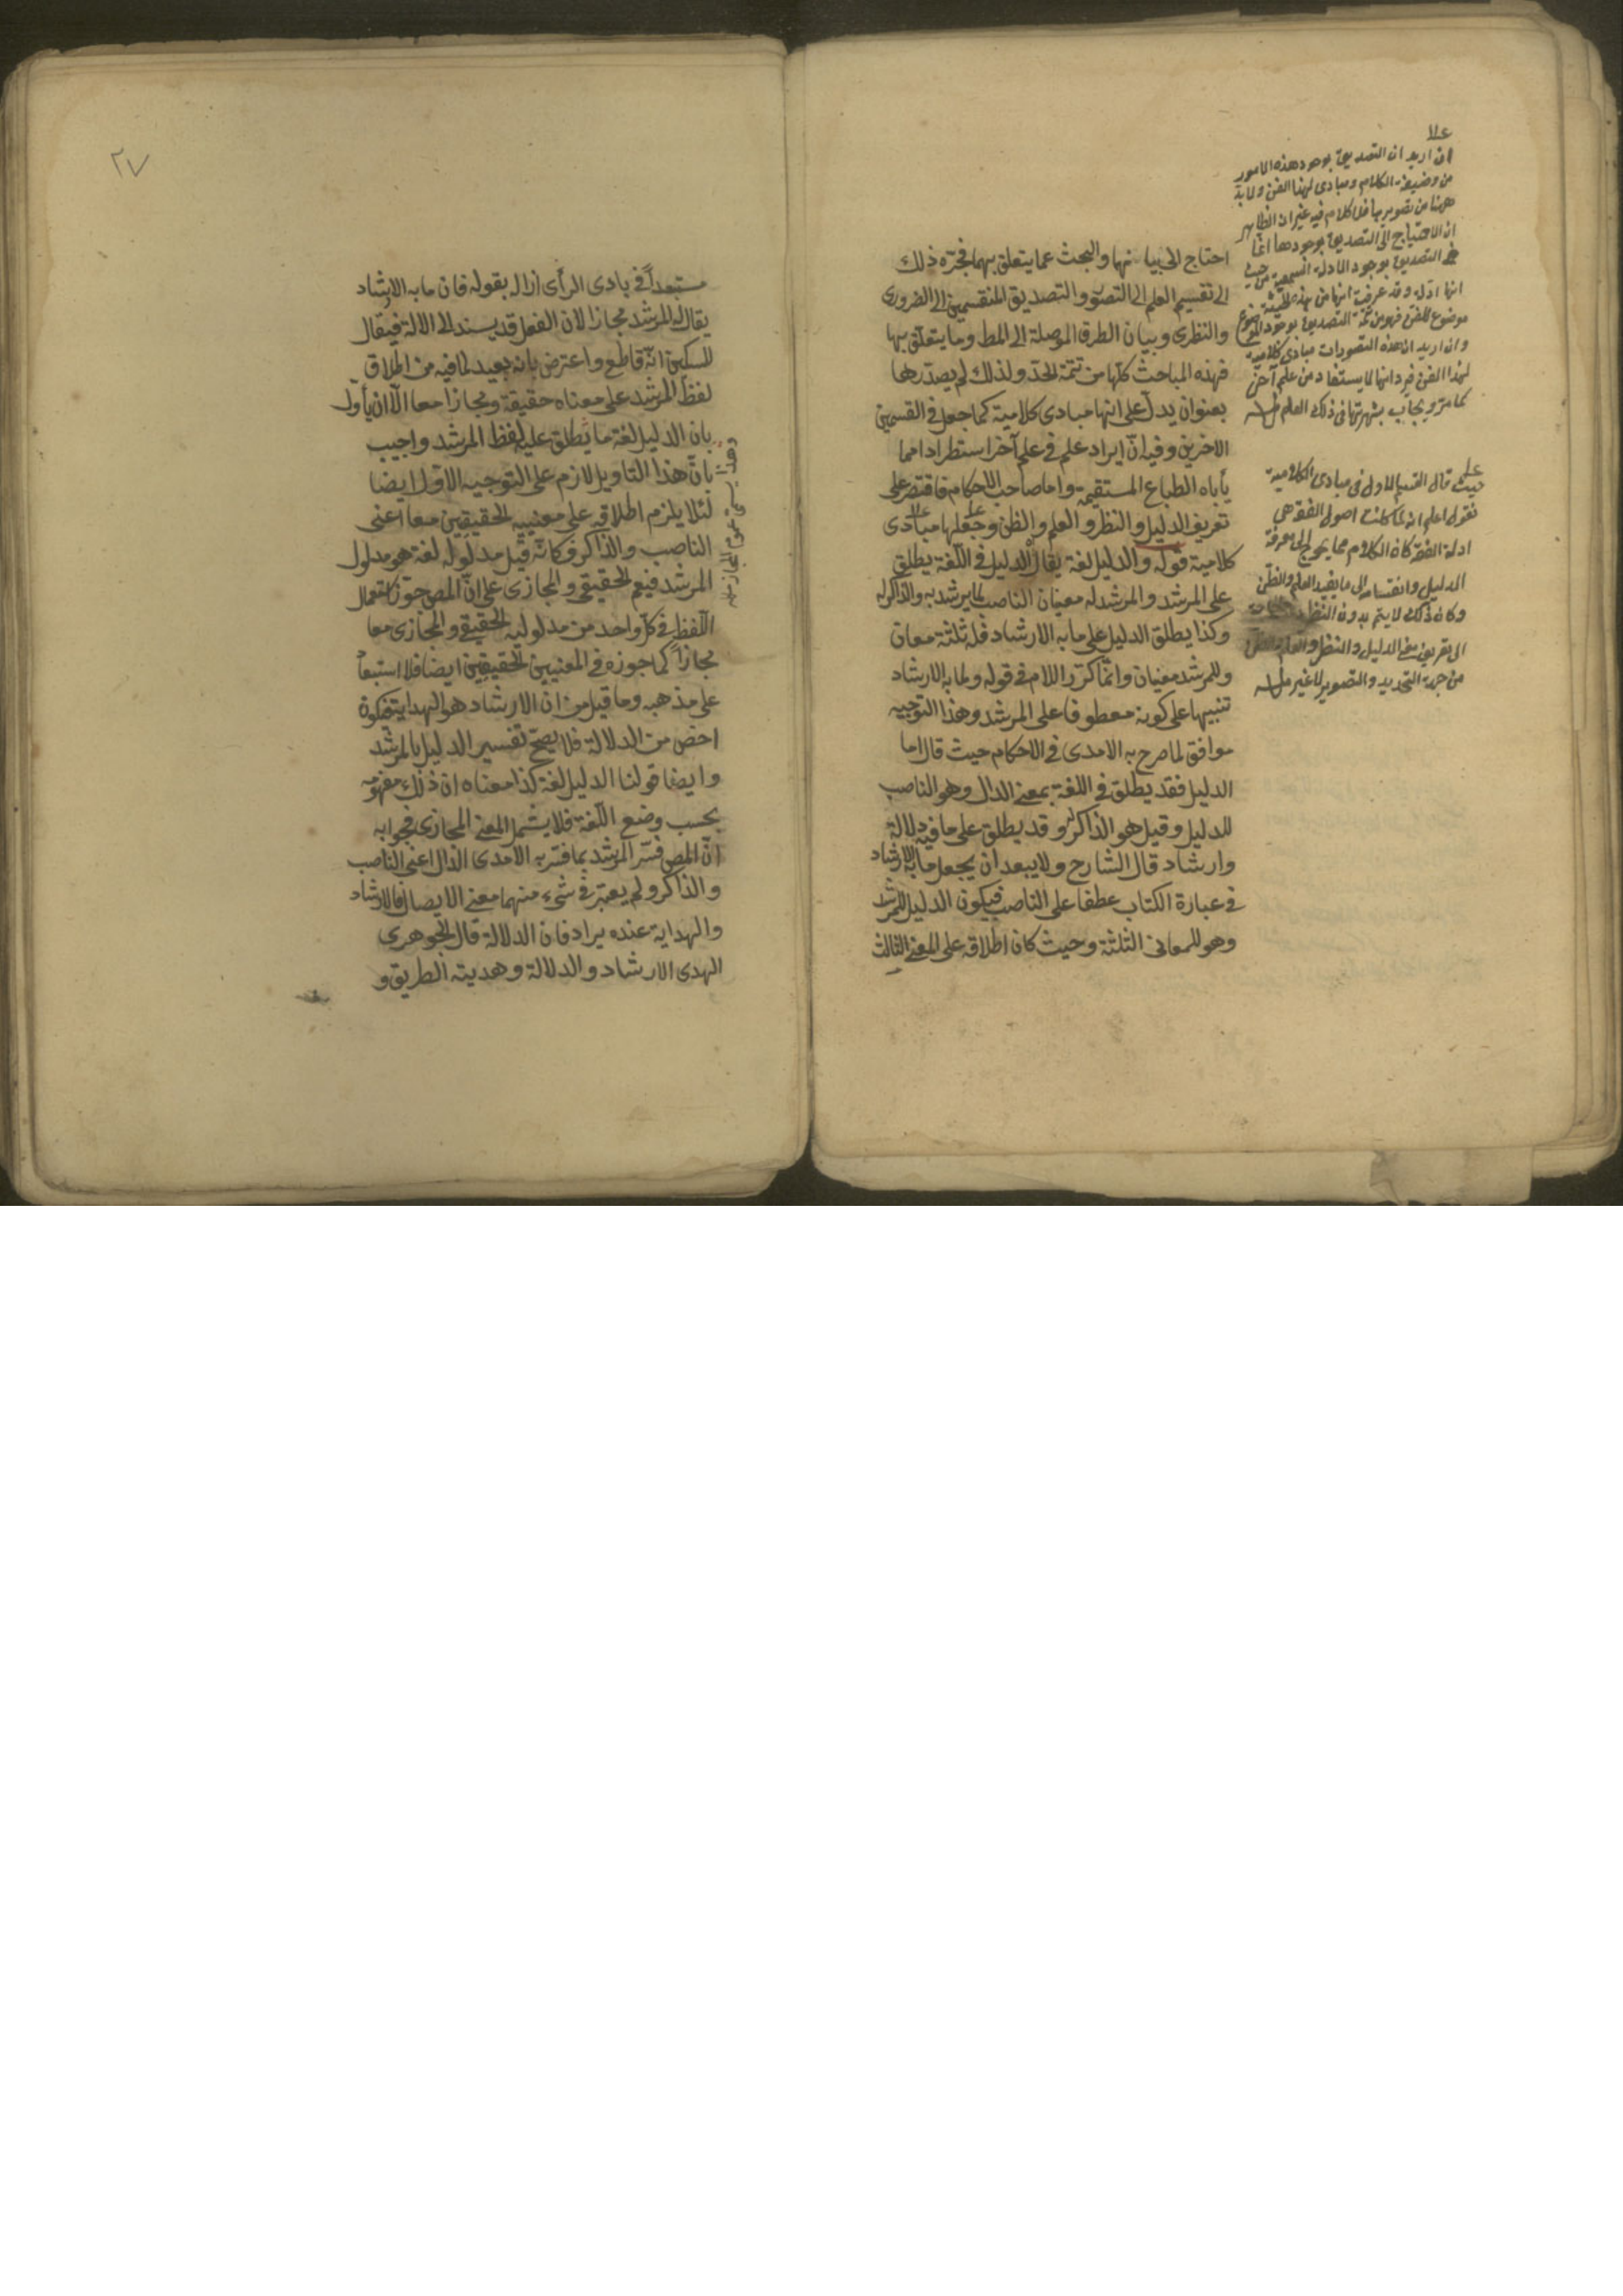 احتاج الى بيانها والبحث عما يتعلق بهما فجره ذلك
الى تقسيم العلم الى التصور والتصديق المنقسمين الى الضرورى
والنظرى وبيان الطرق الموصلة الى المط وما يتعلق بها
فهذه المباحث كلها من تتمة الحد ولذلك لم يصدرها
بعنوان يدل على انها مبادى كلامية كما جعل فى القسمين
الاخرين وفيه ان ايراد علم فى علم آخر استطرادا مما
يأباه الطباع المستقيمة واما صاحب الاحكام فاقتصر على
تعريف الدليل والنظر والعلم والظن وجعلها مبادى
كلامية قوله والدليل لغة يقال الدليل فى اللغة يطلق
على المرشد والمرشد له معنيان الناصب لما يرشد به والذاكر له
وكذا يطلق الدليل على ما به الارشاد فله ثلثة معان
وللمرشد معنيان وانما كرر اللام فى قوله ولما به الارشاد
تنبيها على كونه معطوفا على المرشد وهذا التوجيه
موافق لما صرح به الامدى فى الاحكام حيث قال اما
الدليل فقد يطلق فى اللغة بمعنى الدال وهو الناصب
للدليل وقيل هو الذاكر له وقد يطلق على ما فيه دلالة
وارشاد قال الشارح ولا يبعد ان يجعل ما به الارشاد
فى عبارة الكتاب عطفا على الناصب فيكون الدليل للمرشد
وهو للمعانى الثلثة وحيث كان اطلاقه على المعنى الثالث
ان اريد ان التصديق بوجود هذه الامور
من وضيفة الكلام ومبادى لهذا الفن ولا بد
ههنا من تصويرها فلا كلام فيه غير ان الظاهر
ان الاحتياج الى التصديق بوجودها انما
هو التصديق بوجود الادلة السمعية من حيث
انها ادلة وقد عرفت انها من هذه الحيثية
موضوع للفن فهو من تتمة التصديق بوجود الموضوع
وان اريد ان هذه التصورات مبادى كلامية
لهذا الفن فيرد انها لا يستفاد من علم آخر
كما مر ويجاب بشهرتها فى ذلك العلم
حيث قال القسم الاول فى مبادى الكلامية
فنقول اعلم انه لما كانت اصول الفقه هى
ادلة الفقه كان الكلام مما يحوج الى معرفة
الدليل وانقسامه الى ما يفيد العلم والظن
وكان ذلك لا يتم بدون النظر
الى تعريف معنى الدليل والنظر والعلم والظن
من جهة التحديد والتصوير لا غير
٢٧
مستبعدا فى بادى الرأى ازاله بقوله فان ما به الارشاد
يقال له المرشد مجازا لان الفعل قد يسند الى الالة فيقال
للسكين انه قاطع واعترض بانه بعيد لما فيه من اطلاق
لفظ المرشد على معناه حقيقة ومجازا معا الا ان يأول
بان الدليل لغة ما يطلق عليه لفظ المرشد واجيب
بان هذا التاويل لازم على التوجيه الاول ايضا
لئلا يلزم اطلاقه على معنييه الحقيقيين معا اعنى
الناصب والذاكر فكانه قيل مدلوله لغة هو مدلول
المرشد فيعم الحقيقى والمجازى على ان المص جوز استعمال
اللفظ فى كل واحد من مدلوليه الحقيقى والمجازى معا
مجازا كما جوزه فى المعنيين الحقيقيين ايضا فلا استبعاد
على مذهبه وما قيل من ان الارشاد هو الهداية فيكون
اخص من الدلالة فلا يصح تفسير الدليل بالمرشد
وايضا قولنا الدليل لغة كذا معناه ان ذلك مفهومه
بحسب وضع اللغة فلا يشمل المعنى المجازى فجوابه
ان المص فسر المرشد بما فسر به الامدى الدال اعنى الناصب
والذاكر ولم يعتبر فى شىء منهما معنى الايصال فالارشاد
والهداية عنده يرادفان الدلالة قال الجوهرى
الهدى الارشاد والدلالة وهديته الطريق و
وهذا يسمى عموم المجاز